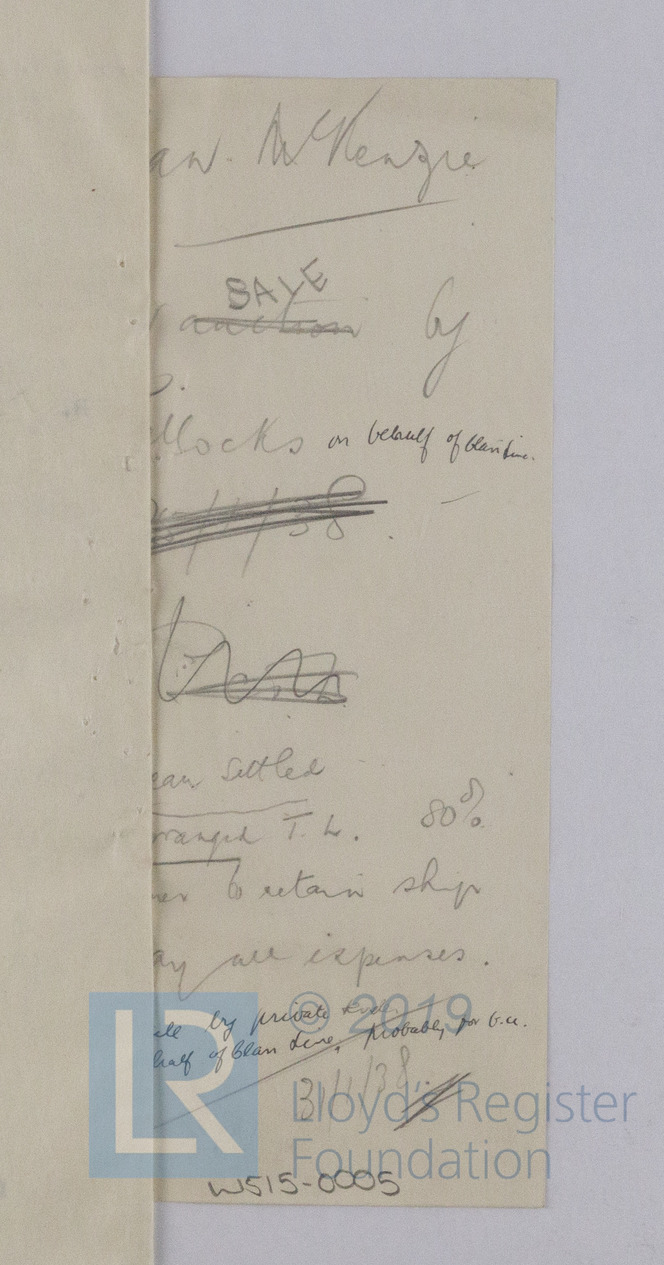 aw. McKenzie
SALE
auction by
s.
llocks on behalf of Clan Line.
3/1/38.
ean Settled
rranged T. L. 80%
ner to retain ship
ay all expenses.
ale by private
half of Clan Line, probably for b.u.
31/1/38
W515-0005
LR
© 2019
Lloyd's Register
Foundation